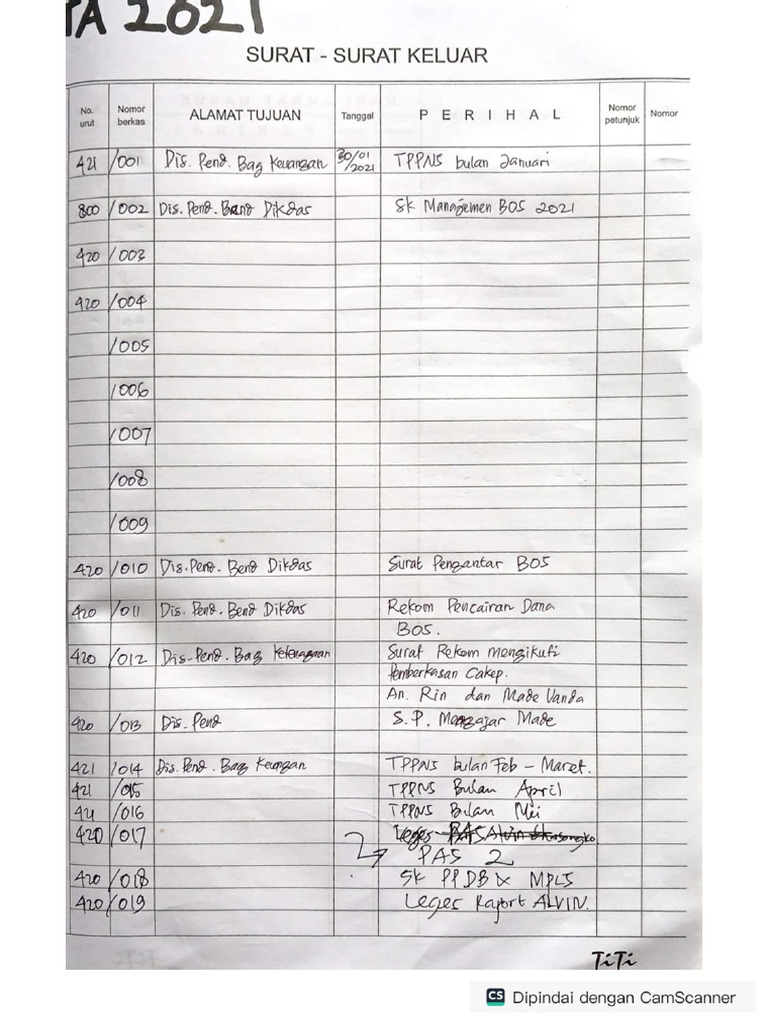 TA 2021
SURAT - SURAT KELUAR
No. urut Nomor berkas ALAMAT TUJUAN Tanggal PERIHAL Nomor petunjuk Nomor
421 /001 Dis. Pend. Bag Keuangan 30/01/2021 TPPNS bulan Januari
800 /002 Dis. Pend. Bend Dikdas SK Manajemen BOS 2021
420 /003
420 /004
/005
/006
/007
/008
/009
420 /010 Dis. Pend. Bend Dikdas Surat Pengantar BOS
420 /011 Dis. Pend. Bend Dikdas Rekom Pencairan Dana
BOS.
420 /012 Dis-Pend. Bag Surat Rekom mengikuti
Pemberkasan Cakep.
An. Rin dan Made Vanda
420 /013 Dis. Pend S.P. Mengajar Made
421 /014 Dis. Pend. Bag Keungan TPPNS bulan Feb - Maret.
421 /015 TPPNS Bulan April
421 /016 TPPNS Bulan Mei
420 /017 Leger
PAS 2
420 /018 SK PPDB & MPLS
420 /019 Leger Raport ALVIN.
TiTi
CS Dipindai dengan CamScanner